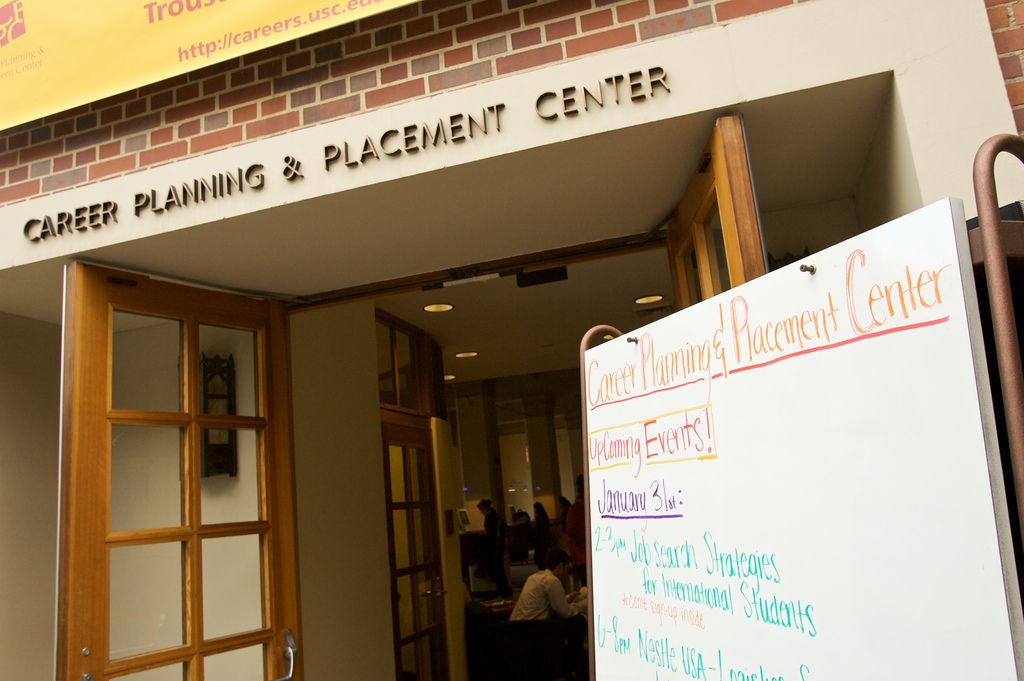 http://careers.usc.edu
Planning &
Center
CAREER PLANNING & PLACEMENT CENTER
Career Planning & Placement Center
UpComing Events!
January 31st:
2-3pm Job Search Strategies
for International Students
*come sign-up inside
6-8pm Nestle USA-Logistics